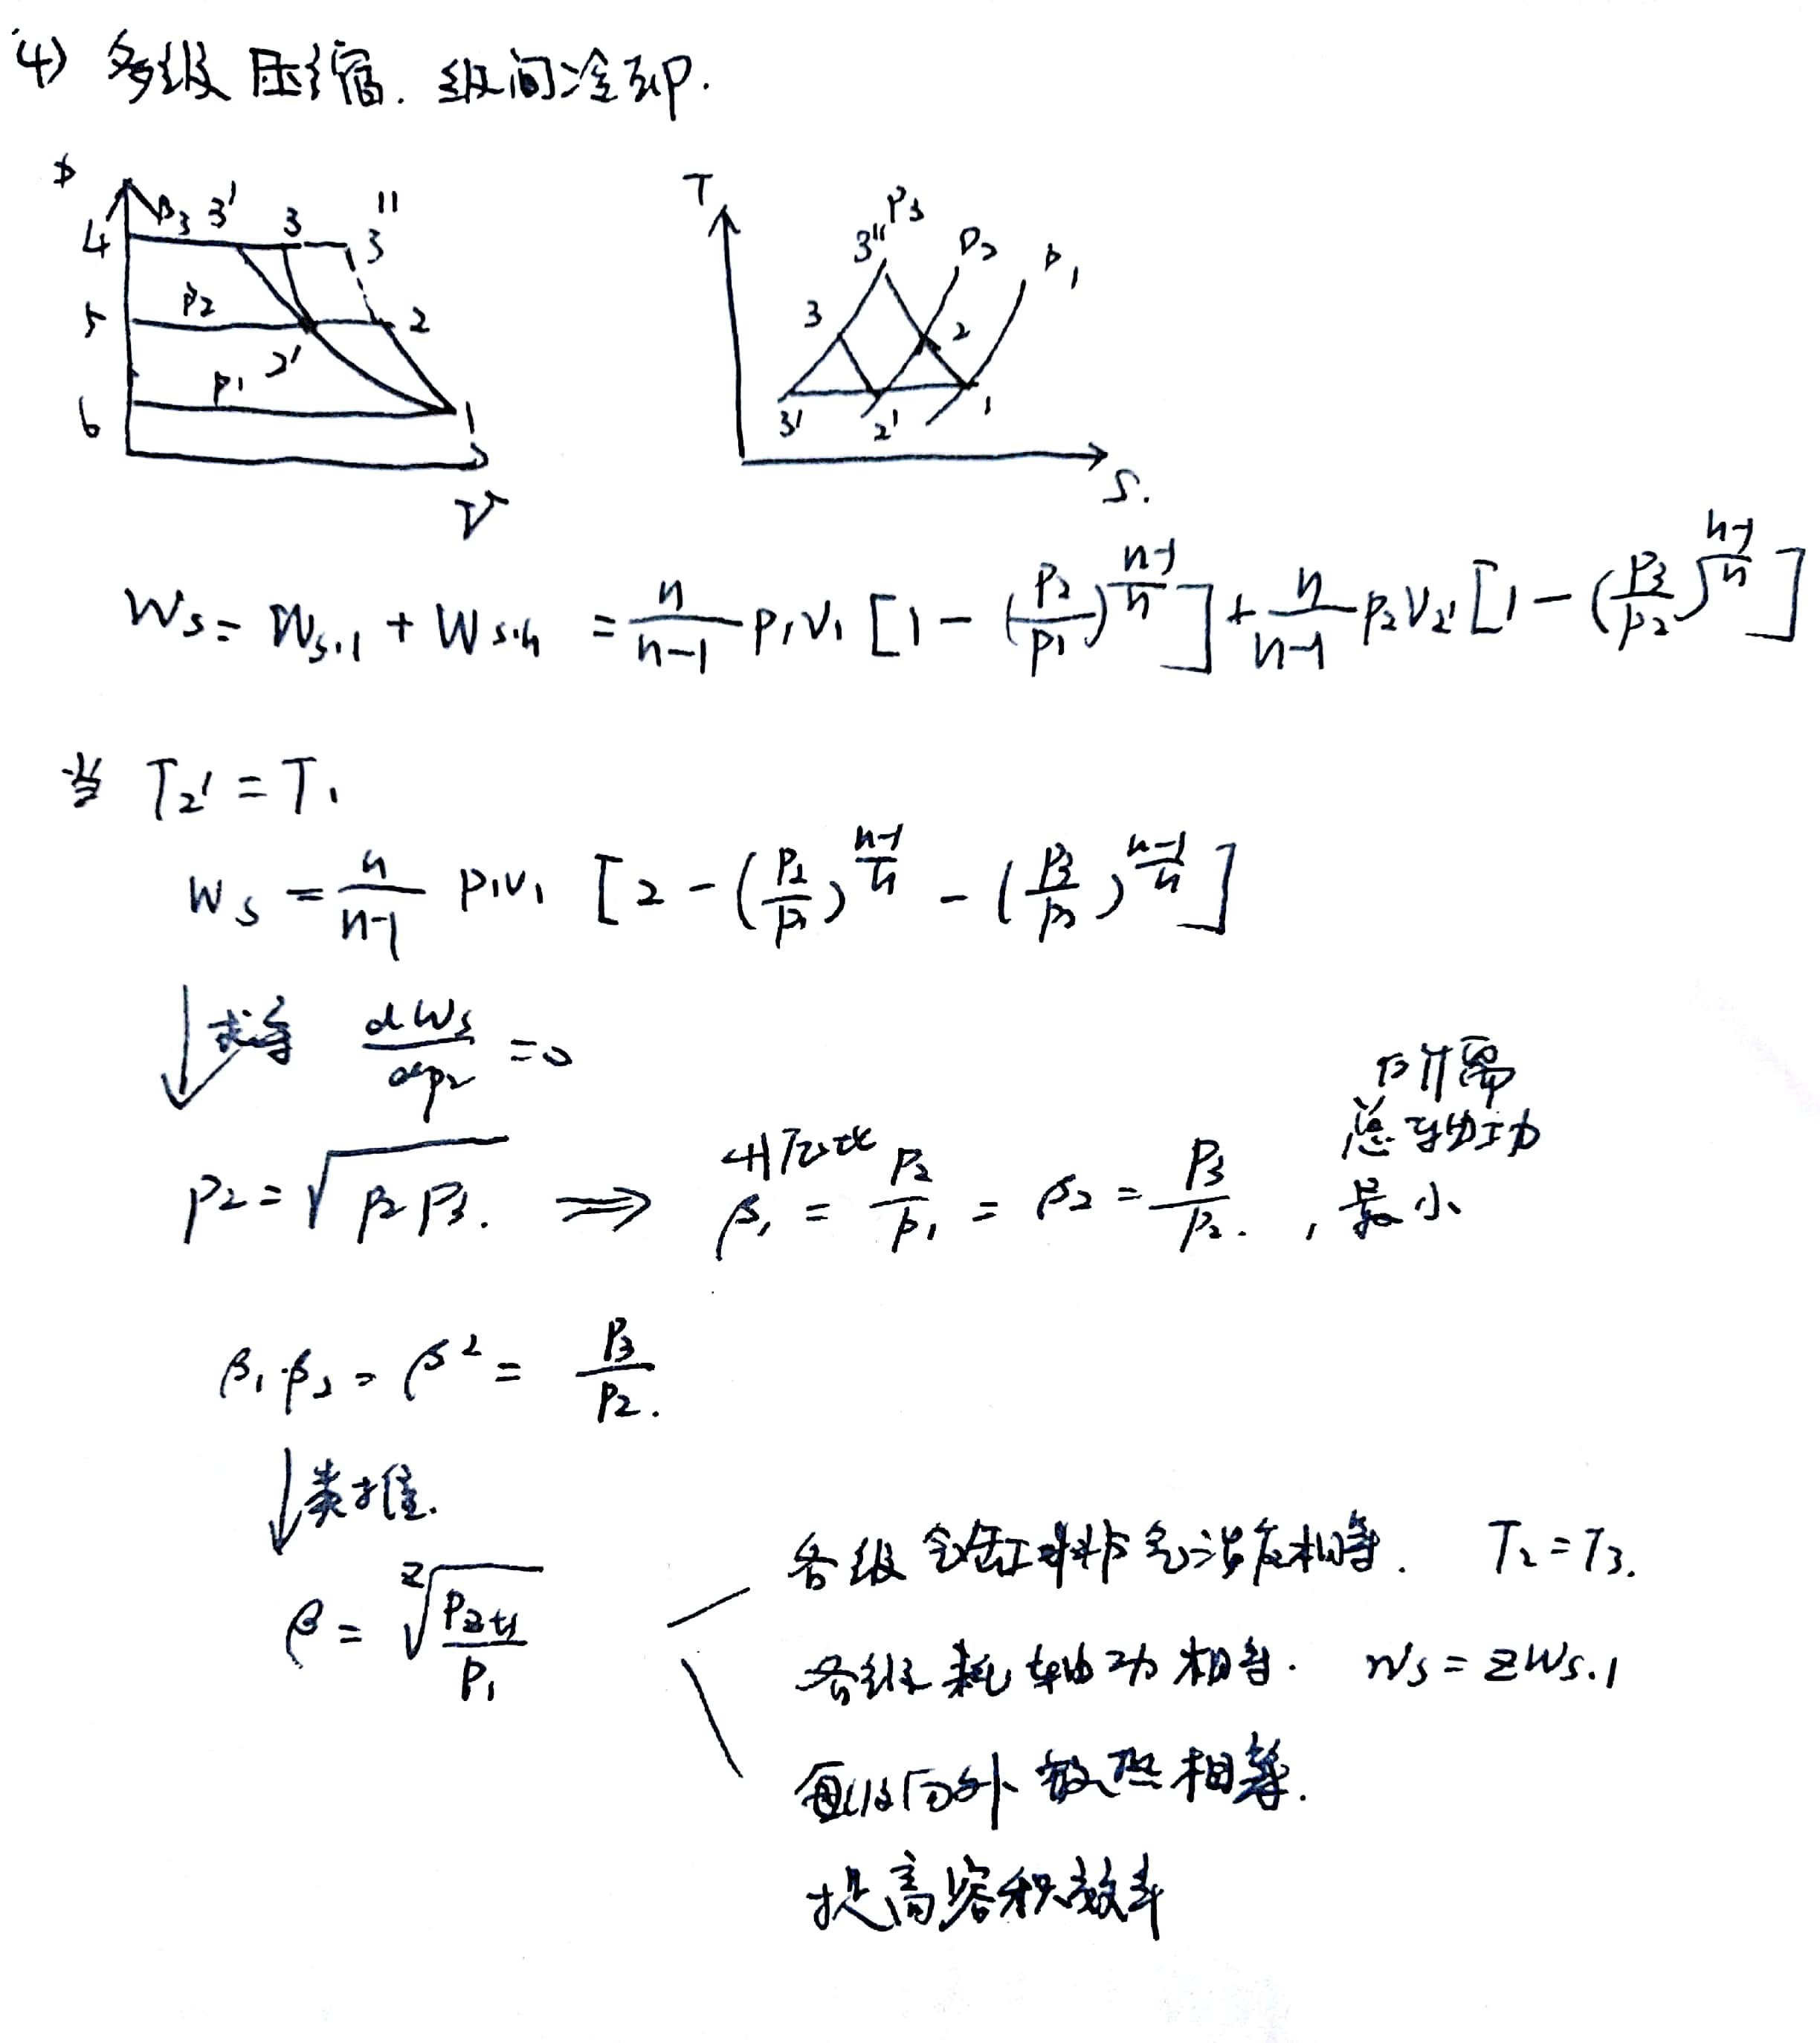 (4) 多级压缩. 级间冷却.
p
4 p3 3' 3 3''
5 p2 2' 2
6 p1 1
V
T
3'' p3 p2 p1
3 2
3' 2' 1
S.
Ws = Ws.1 + Ws.h = n/(n-1) p1v1 [1 - (p2/p1)^((n-1)/n)] + n/(n-1) p2v2' [1 - (p3/p2)^((n-1)/n)]
当 T2' = T1
Ws = n/(n-1) p1v1 [2 - (p2/p1)^((n-1)/n) - (p3/p2)^((n-1)/n)]
↓ 求导 dWs/dp2 = 0
p2 = √(p2 p3). ⇒ β1 = p2/p1 = β2 = p3/p2. , 所需总轴功最小
β1·β2 = β² = p3/p2.
↓ 类推.
β = ᶻ√(pz+1/p1)
各级气缸排气温度相等. T2 = T3.
各级耗轴功相等. Ws = zWs.1
每级向外散热相等.
提高容积效率